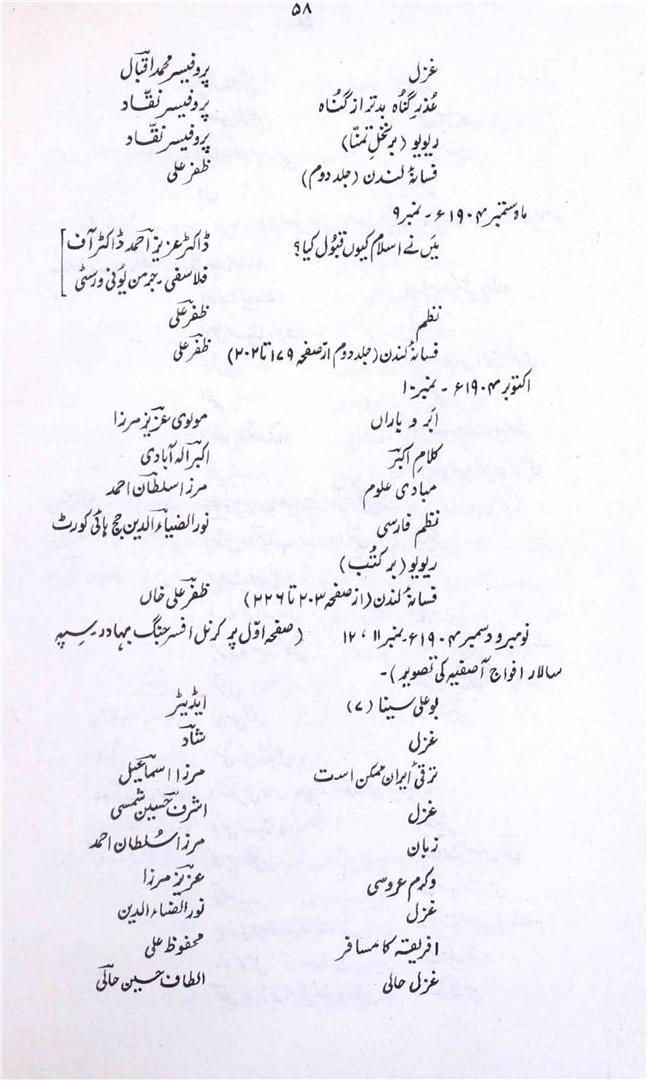 ۵۸
غزل پروفیسر محمد اقبال
عُذرِ گناہ بدتر از گناہ پروفیسر نقّاد
ریویو (بر نخلِ تمنّا) پروفیسر نقّاد
فسانۂ لندن (جلد دوم) ظفر علی
ماہ ستمبر ۱۹۰۴ء - نمبر ۹
میں نے اسلام کیوں قبول کیا؟ ڈاکٹر عزیز احمد ڈاکٹر آف
فلاسفی - جرمن یونی ورسٹی
نظم ظفر علی
فسانۂ لندن (جلد دوم از صفحہ ۱۷۹ تا ۲۰۲) ظفر علی
اکتوبر ۱۹۰۴ء - نمبر ۱۰
ابر و باراں مولوی عزیز مرزا
کلامِ اکبر اکبر الہ آبادی
مبادی علوم مرزا سلطان احمد
نظم فارسی نور الضیاء الدین جج ہائی کورٹ
ریویو (بر کتُب)
فسانۂ لندن (از صفحہ ۲۰۳ تا ۲۲۶) ظفر علی خاں
نومبر و دسمبر ۱۹۰۴ء - نمبر ۱۱، ۱۲ (صفحہ اوّل پر کرنل افسر جنگ بہادر سپہ
سالار افواج آصفیہ کی تصویر) -
بو علی سینا (۷) ایڈیٹر
غزل شاد
ترقیٔ ایران ممکن است مرزا اسماعیل
غزل اشرف حسین شمسی
زبان مرزا سُلطان احمد
وکرم عروسی عزیز مرزا
غزل نور الضیاء الدین
افریقہ کا مسافر محفوظ علی
غزل حالی الطاف حسین حالی